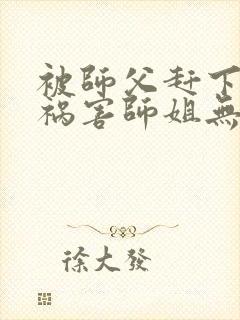 被師父赶下
祸害師姐無
徐大發